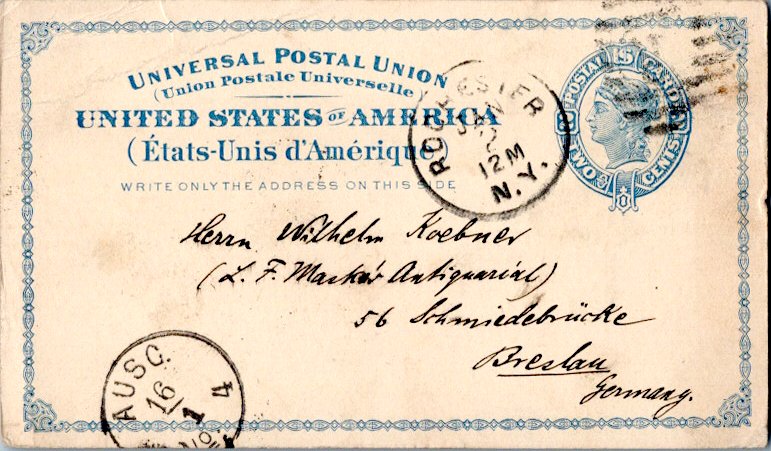 UNIVERSAL POSTAL UNION
(Union Postale Universelle)
UNITED STATES OF AMERICA
(États-Unis d'Amérique)
WRITE ONLY THE ADDRESS ON THIS SIDE
U.S. POSTAL CARD
TWO CENTS
ROCHESTER
JAN
2
12 M
N.Y.
Herrn Wilhelm Koebner
(L. F. Maske's Antiquariat)
56 Schmiedebrücke
Breslau
Germany.
AUSG.
16
1
4
No